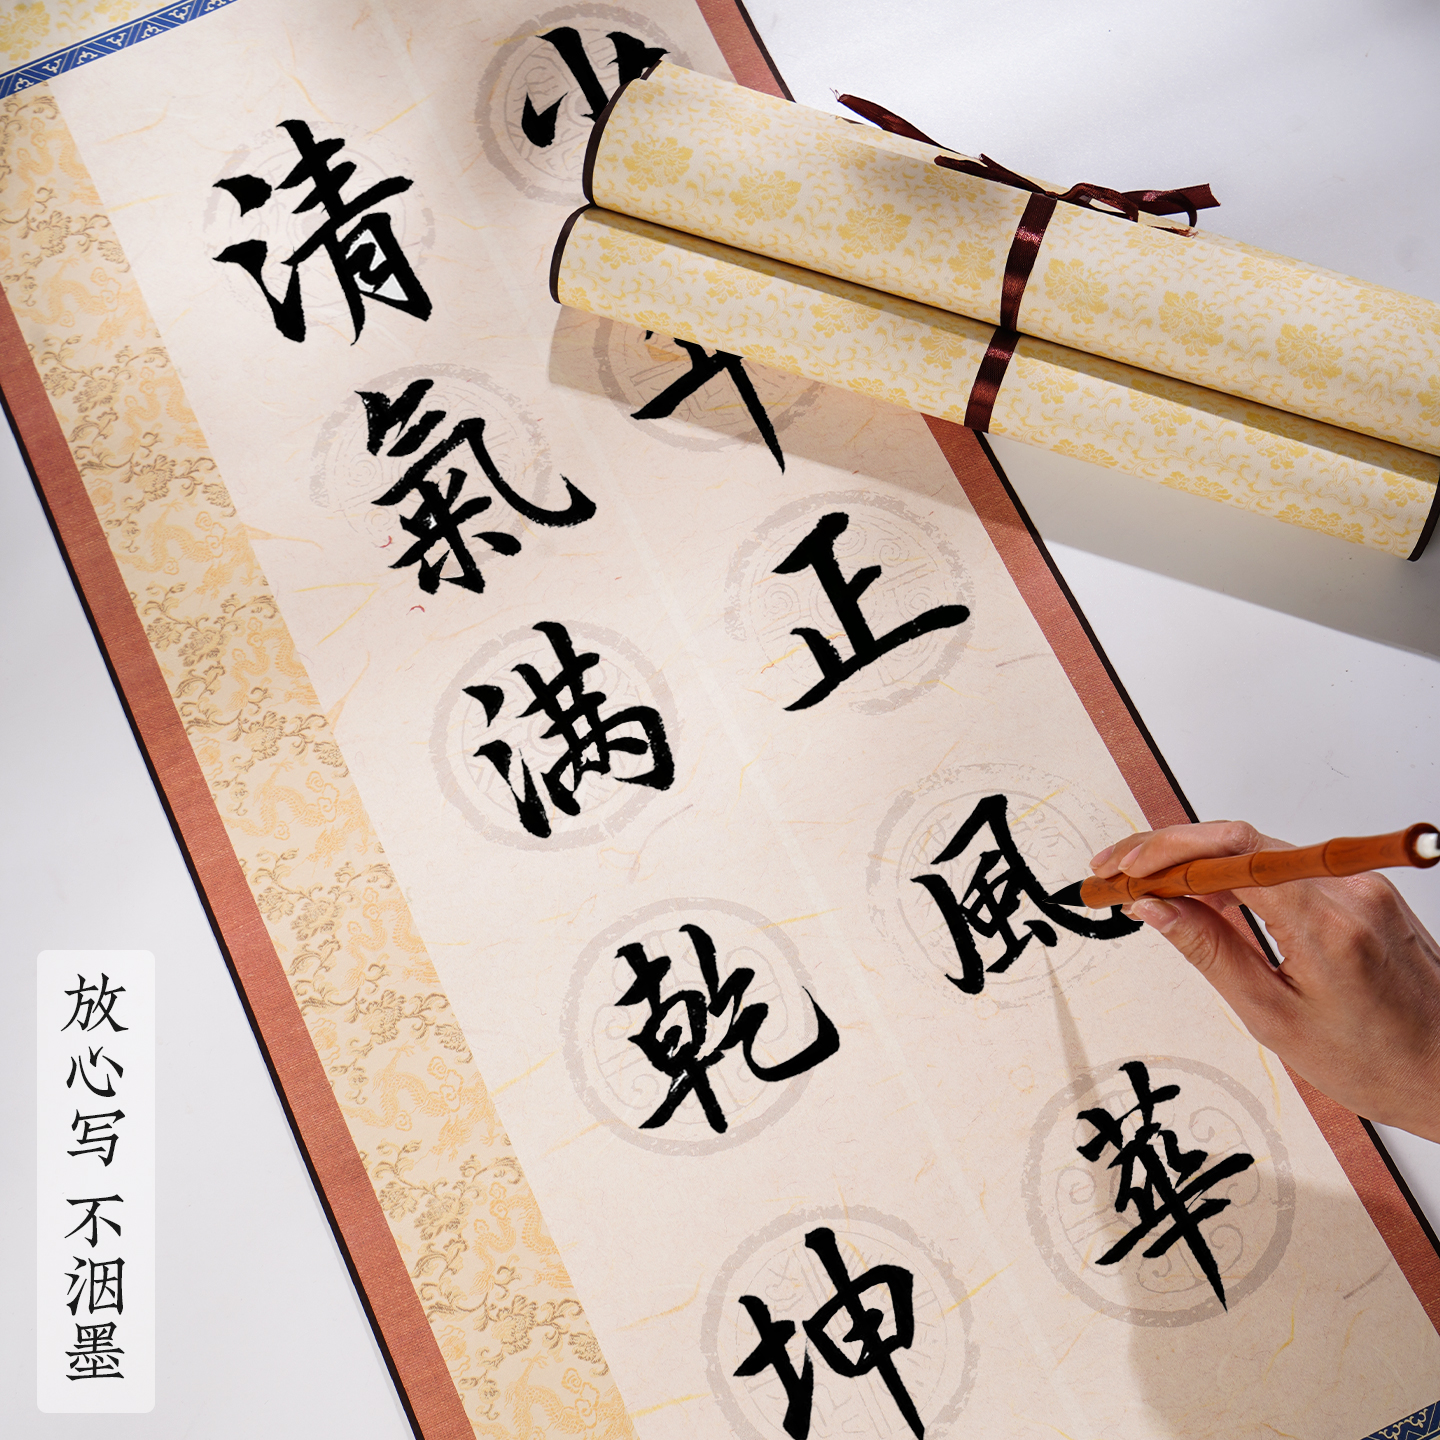 正風華
清氣满乾坤
放心写 不洇墨